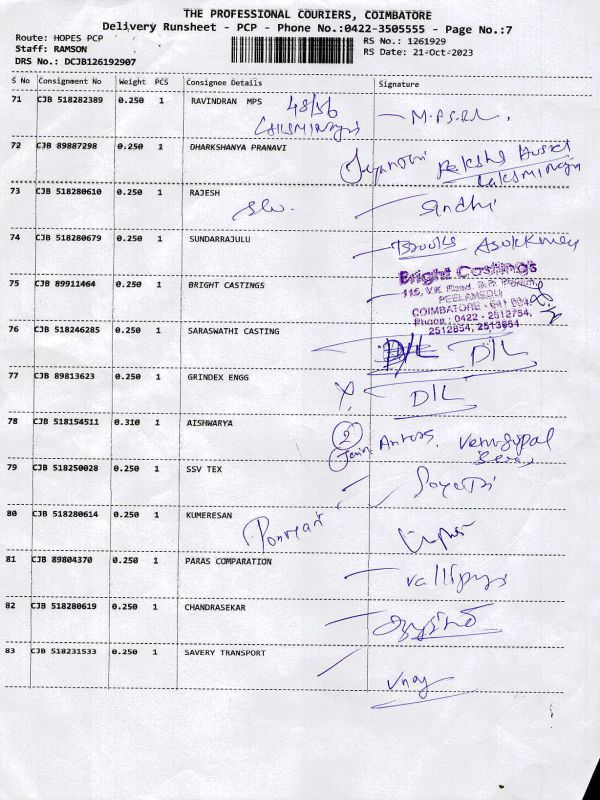 THE PROFESSIONAL COURIERS, COIMBATORE
Delivery Runsheet - PCP - Phone No.:0422-3505555 - Page No.:7
Route: HOPES PCP
RS No.: 1261929
Staff: RAMSON
RS Date: 21-Oct-2023
DRS No.: DCJB126192907
S No Consignment No Weight PCS Consignee Details Signature
71 CJB 518282389 0.250 1 RAVINDRAN MPS 48/56
72 CJB 89887298 0.250 1 DHARKSHANYA PRANAVI
73 CJB 518280610 0.250 1 RAJESH
74 CJB 518280679 0.250 1 SUNDARRAJULU
Brooks
Bright Castings
75 CJB 89911464 0.250 1 BRIGHT CASTINGS
PEELAMEDU
COIMBATORE - 641 004
Phone : 0422 - 2512754,
2512854, 2513654
76 CJB 518246285 0.250 1 SARASWATHI CASTING D/L D/L
77 CJB 89813623 0.250 1 GRINDEX ENGG
D/L
78 CJB 518154511 0.310 1 AISHWARYA 2 Venugopal
79 CJB 518250028 0.250 1 SSV TEX
80 CJB 518280614 0.250 1 KUMERESAN
81 CJB 89804370 0.250 1 PARAS COMPARATION
82 CJB 518280619 0.250 1 CHANDRASEKAR
83 CJB 518231533 0.250 1 SAVERY TRANSPORT